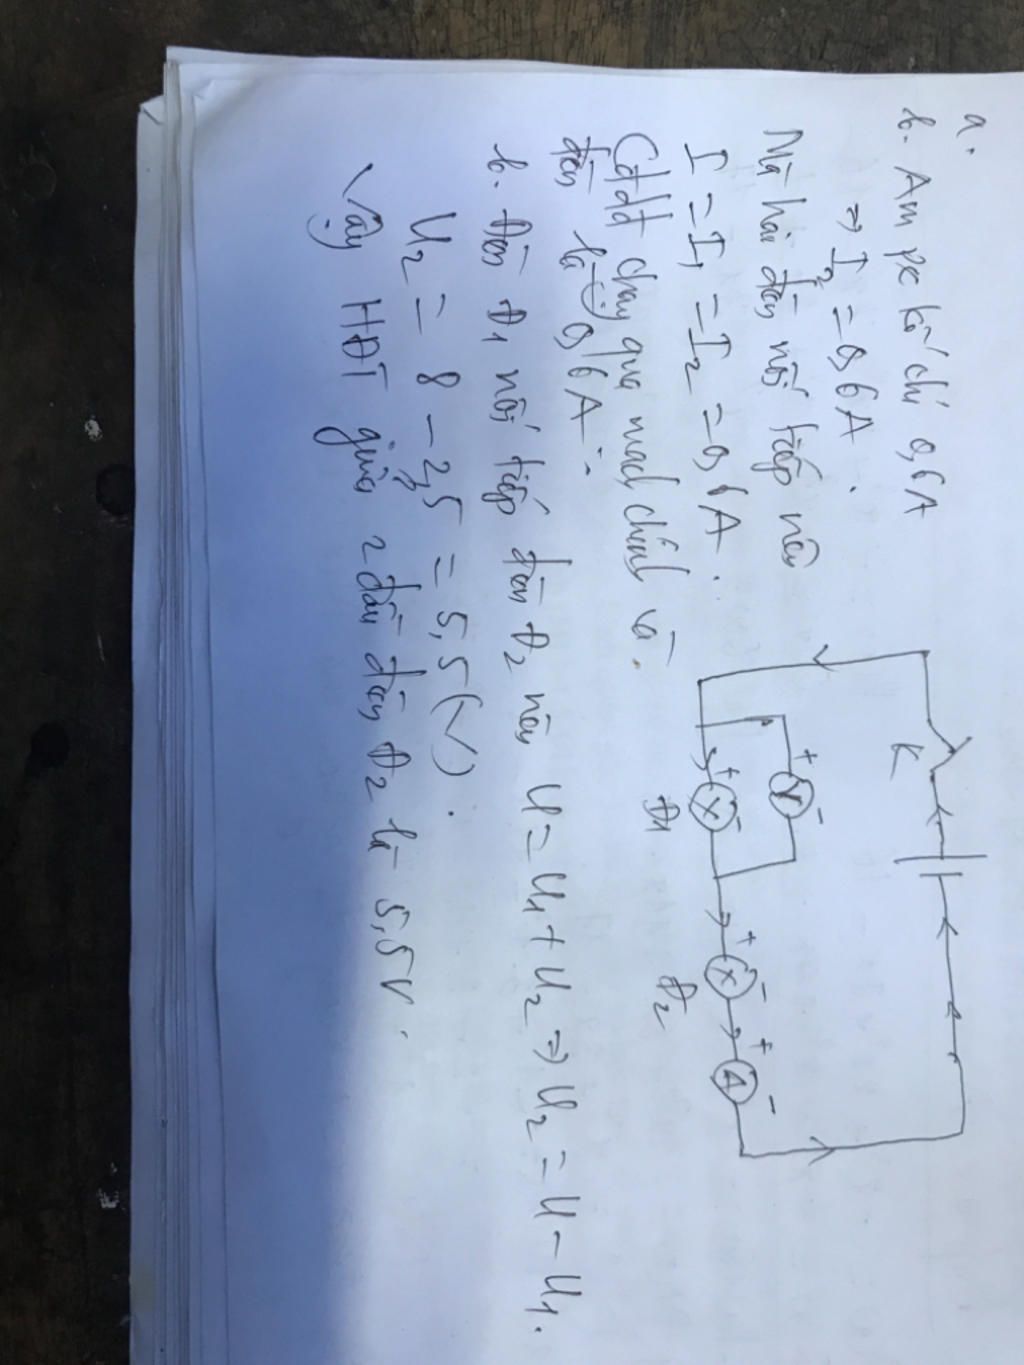 a.
b. Am pe kế chỉ 0,6A
=> I₂ = 0,6A.
Mà hai đèn nối tiếp nên
I = I₁ = I₂ = 0,6A.
Cđdđ chạy qua mạch chính và
đèn là 0,6A.
K
+ -
V
+ -
X
Đ1
+ -
X
Đ2
+ -
A
b. Đèn Đ1 nối tiếp đèn Đ2 nên U = U₁ + U₂ => U₂ = U - U₁.
U₂ = 8 - 2,5 = 5,5 (V).
Vậy HĐT giữa 2 đầu đèn Đ2 là 5,5V.